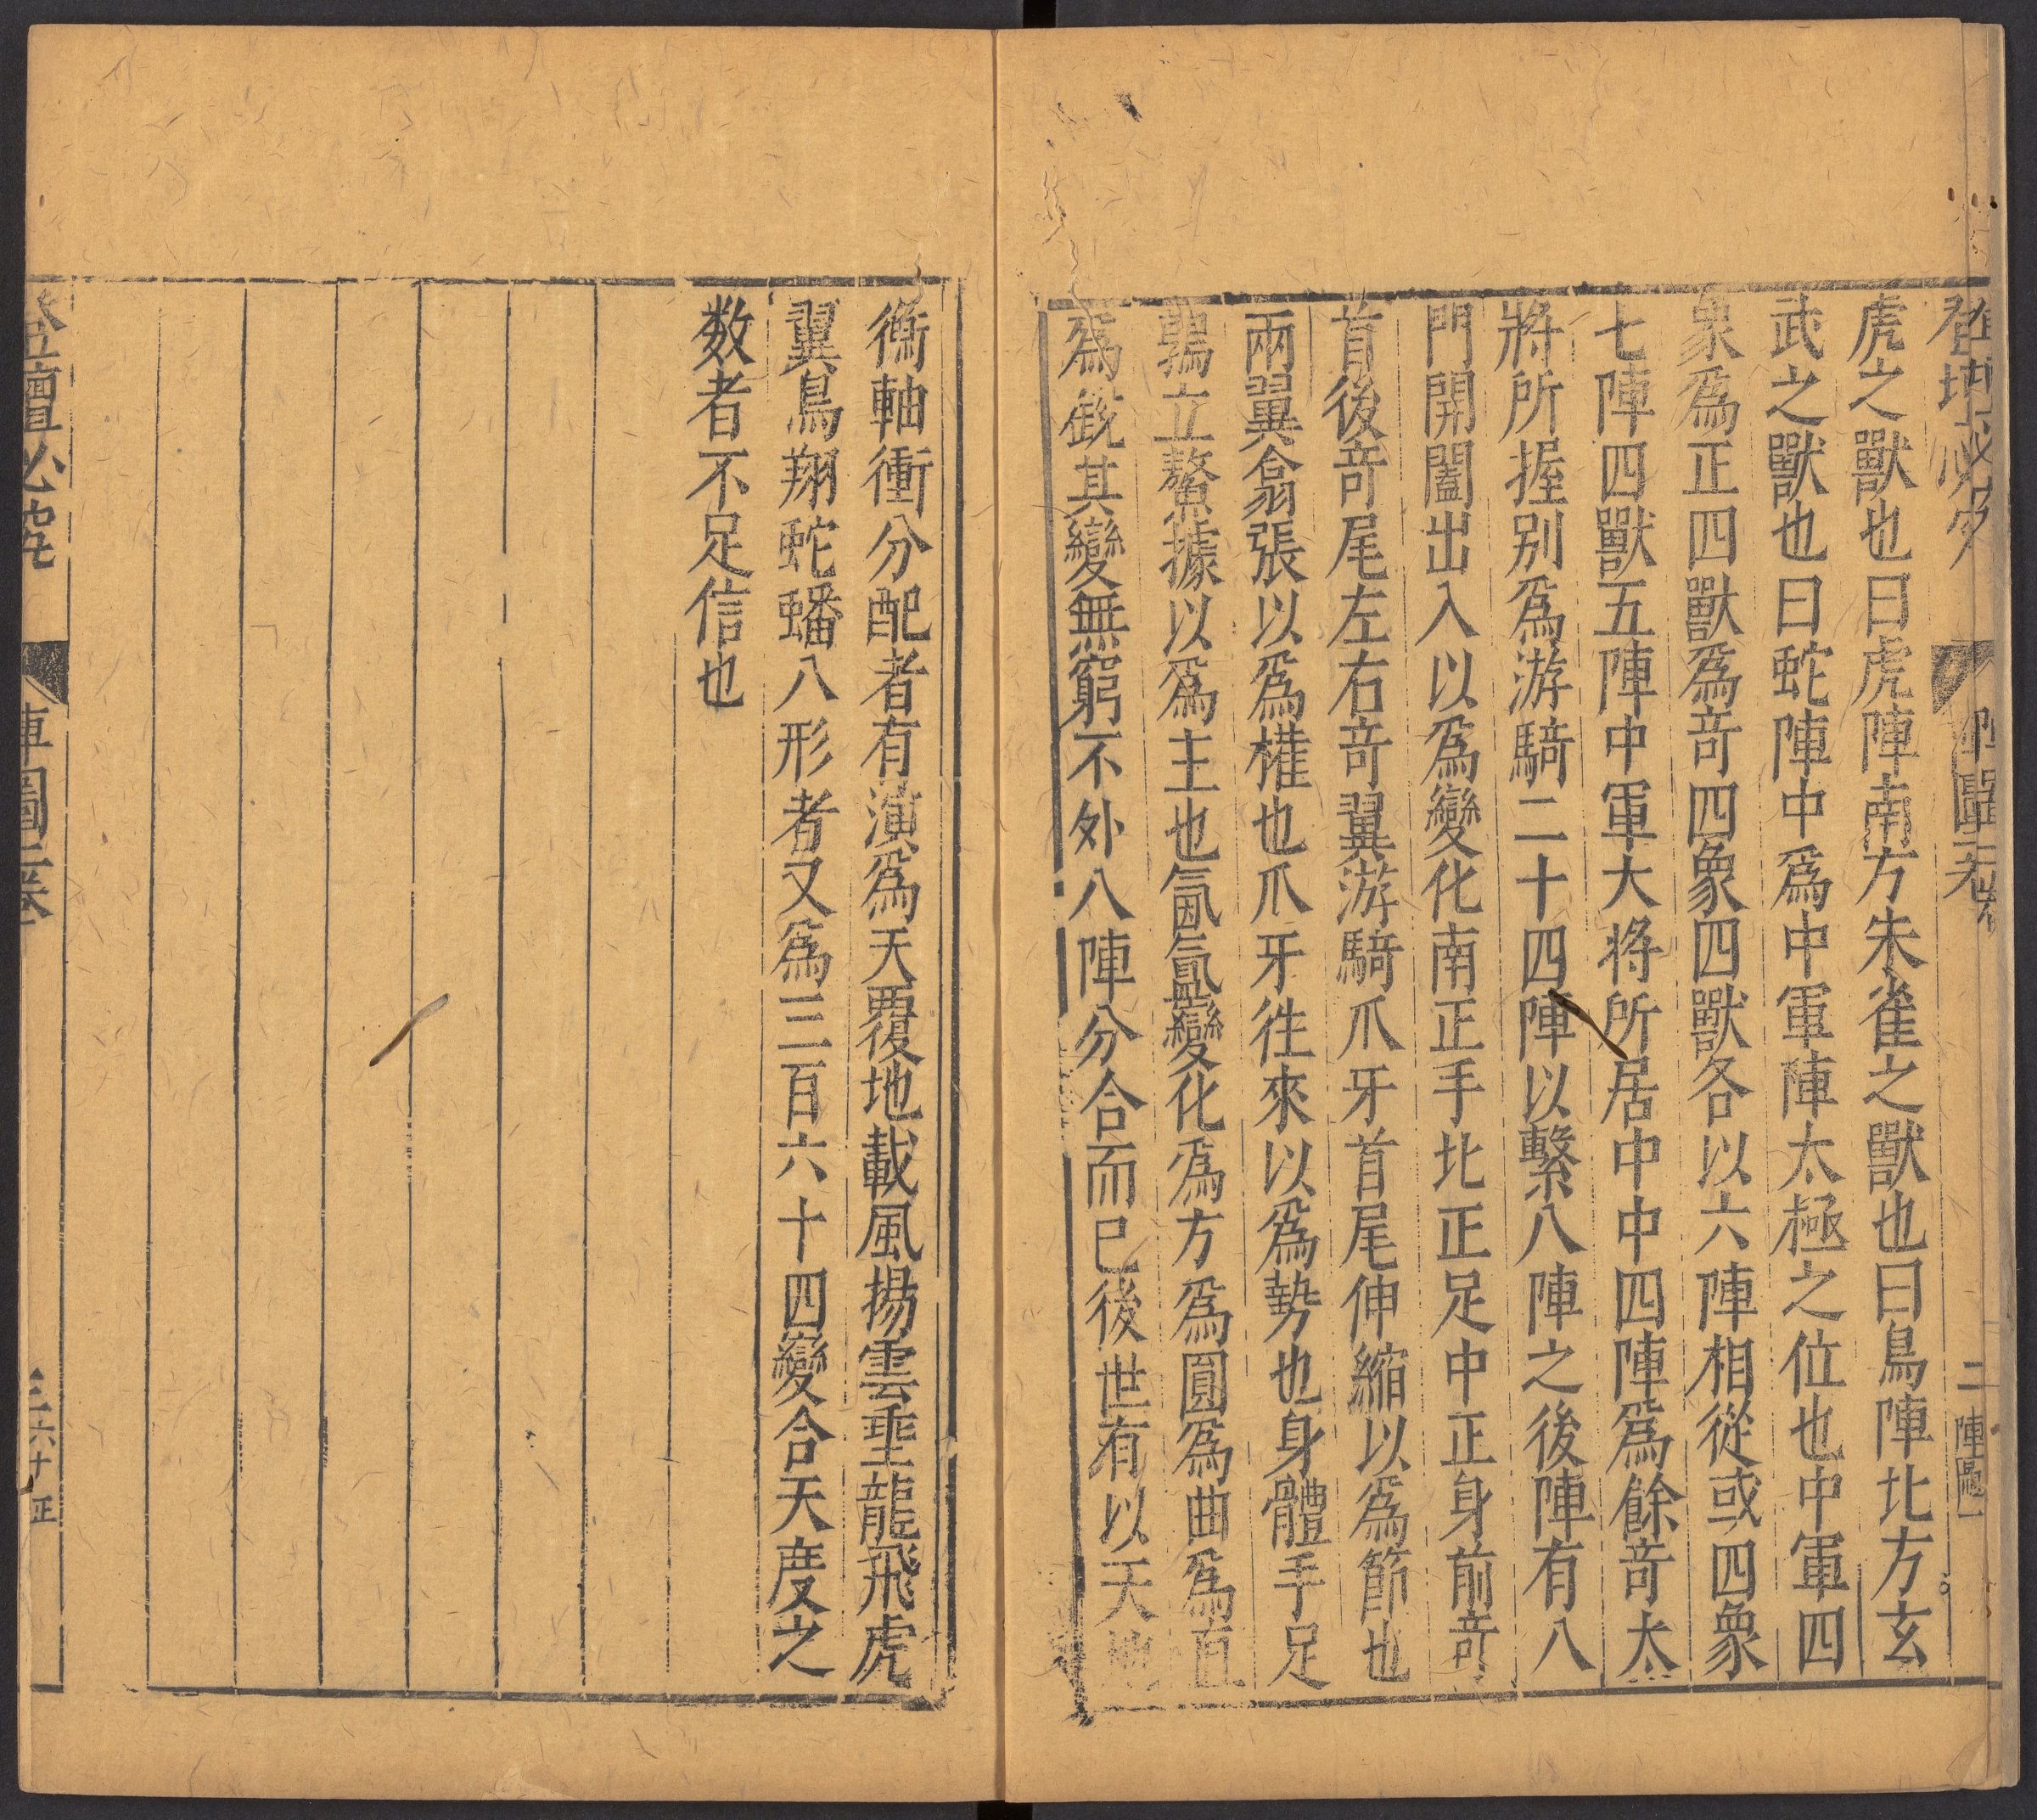 虎之獸也曰虎陣南方朱雀之獸也曰鳥陣北方玄
武之獸也曰蛇陣中為中軍陣太極之位也中軍四
象為正四獸為竒四象四獸各以六陣相從或四象
七陣四獸五陣中軍大將所居中中四陣為餘竒太
將所握别為游騎二十四陣以繫八陣之後陣有八
門開闔出入以為變化南正手北正足中正身前竒
首後竒尾左右竒翼游騎爪牙首尾伸縮以為節也
兩翼翕張以為權也爪牙徃來以為勢也身體手足
鶚立鰲據以為主也氤氳變化為方為圓為曲為直
為銳其變無窮不外八陣分合而已後世有以天地
衡軸衝分配者有演為天覆地載風揚雲垂龍飛虎
翼鳥翔蛇蟠八形者又為三百六十四變合天度之
数者不足信也
登壇必究
陣圖二卷
三六十 正